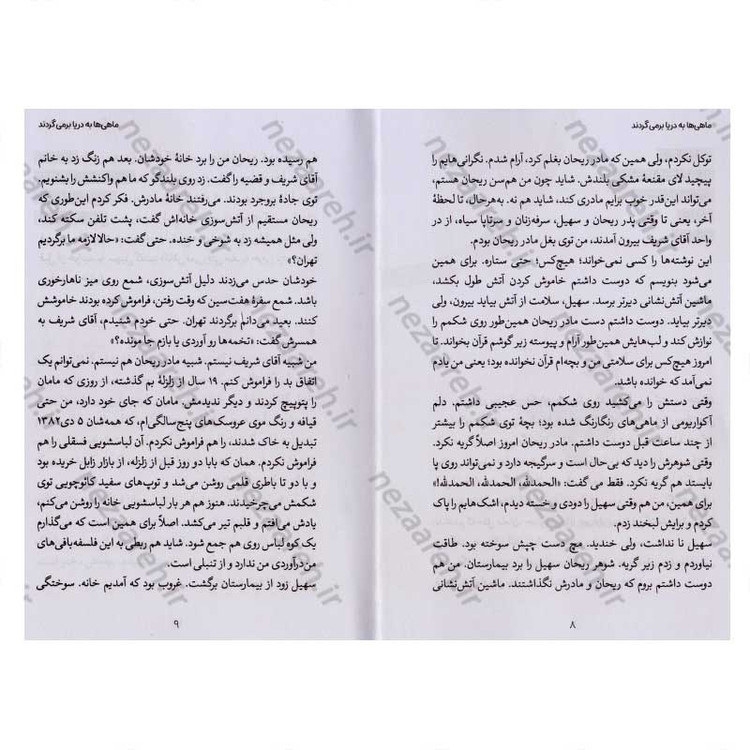 ماهی‌ها به دریا برمی‌گردند
توکل نکردم، ولی همین که مادر ریحان بغلم کرد، آرام شدم. نگرانی‌هایم را
پیچید لای مقنعهٔ مشکی بلندش. شاید چون من هم‌سن ریحان هستم،
می‌تواند این‌قدر خوب برایم مادری کند، شاید هم نه. به‌هرحال، تا لحظهٔ
آخر، یعنی تا وقتی پدر ریحان و سهیل، سرفه‌زنان و سرتاپا سیاه، از در
واحد آقای شریف بیرون آمدند، من توی بغل مادر ریحان بودم.
این نوشته‌ها را کسی نمی‌خواند؛ هیچ‌کس؛ حتی ستاره. برای همین
می‌شود بنویسم که دوست داشتم خاموش کردن آتش طول بکشد،
ماشین آتش‌نشانی دیرتر برسد. سهیل، سلامت از آتش بیاید بیرون، ولی
دیرتر بیاید. دوست داشتم دست مادر ریحان همین‌طور روی شکمم را
نوازش کند و لب‌هایش همین‌طور آرام و پیوسته زیر گوشم قرآن بخواند. تا
امروز هیچ‌کس برای سلامتی من و بچه‌ام قرآن نخوانده بود؛ یعنی من یادم
نمی‌آمد که خوانده باشد.
وقتی دستش را می‌کشید روی شکمم، حس عجیبی داشتم. دلم
آکواریومی از ماهی‌های رنگارنگ شده بود؛ بچهٔ توی شکمم را بیشتر
از چند ساعت قبل دوست داشتم. مادر ریحان امروز اصلاً گریه نکرد.
وقتی شوهرش را دید که بی‌حال است و سرگیجه دارد و نمی‌تواند روی پا
بایستد هم گریه نکرد. فقط می‌گفت: «الحمدلله، الحمدلله، الحمدلله!»
برای همین، من هم وقتی سهیل را دودی و خسته دیدم، اشک‌هایم را پاک
کردم و برایش لبخند زدم.
سهیل نا نداشت، ولی خندید. مچ دست چپش سوخته بود. طاقت
نیاوردم و زدم زیر گریه. شوهر ریحان سهیل را برد بیمارستان. من هم
دوست داشتم بروم که ریحان و مادرش نگذاشتند. ماشین آتش‌نشانی
۸
ماهی‌ها به دریا برمی‌گردند
هم رسیده بود. ریحان من را برد خانهٔ خودشان. بعد هم زنگ زد به خانم
آقای شریف و قضیه را گفت. زد روی بلندگو که ما هم واکنشش را بشنویم.
توی جادهٔ بروجرد بودند. می‌رفتند خانهٔ مادرش. فکر کردم این‌طوری که
ریحان مستقیم از آتش‌سوزی خانه‌اش گفت، پشت تلفن سکته کند،
ولی مثل همیشه زد به شوخی و خنده. حتی گفت: «حالا لازمه ما برگردیم
تهران؟»
خودشان حدس می‌زدند دلیل آتش‌سوزی، شمع روی میز ناهارخوری
باشد. شمع سفرهٔ هفت‌سین که وقت رفتن، فراموش کرده بودند خاموشش
کنند. بعید می‌دانم برگردند تهران. حتی خودم شنیدم، آقای شریف به
همسرش گفت: «تخمه‌ها رو آوردی یا بازم جا مونده؟»
من شبیه آقای شریف نیستم. شبیه مادر ریحان هم نیستم. نمی‌توانم یک
اتفاق بد را فراموش کنم. ۱۹ سال از زلزلهٔ بم گذشته، از روزی که مامان
را پتوپیچ کردند و دیگر ندیدمش. مامان که جای خود دارد، من حتی
قیافه و رنگ موی عروسک‌های پنج‌سالگی‌ام، که همه‌شان ۵ دی ۱۳۸۲
تبدیل به خاک شدند، را هم فراموش نکردم. آن لباسشویی فسقلی را هم
فراموش نکردم. همان که بابا دو روز قبل از زلزله، از بازار زابل خریده بود
و با دو تا باطری قلمی روشن می‌شد و توپ‌های سفید کائوچویی توی
شکمش می‌چرخیدند. هنوز هم هر بار لباسشویی خانه را روشن می‌کنم،
یادش می‌افتم و قلبم تیر می‌کشد. اصلاً برای همین است که می‌گذارم
یک کوه لباس روی هم جمع شود. شاید هم ربطی به این فلسفه‌بافی‌های
من‌درآوردی من ندارد و از تنبلی است.
سهیل زود از بیمارستان برگشت. غروب بود که آمدیم خانه. سوختگی
۹
nezaareh.ir